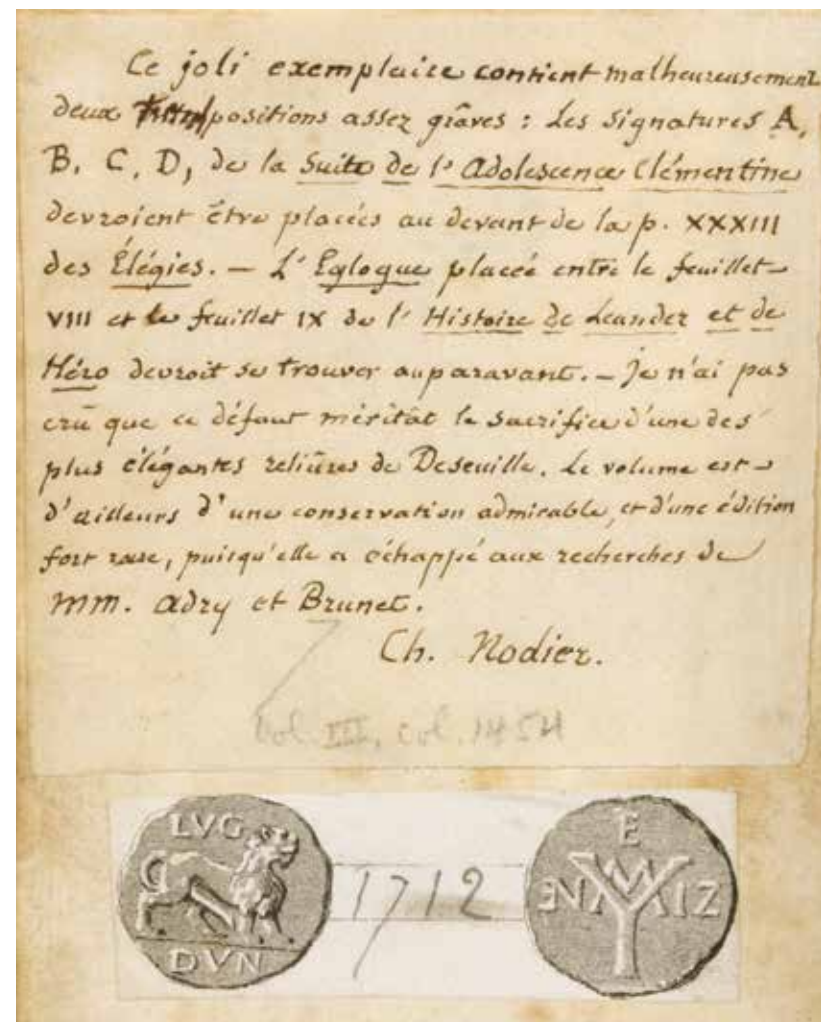 Ce joli exemplaire contient malheureusement
deux positions assez grâves : Les signatures A,
B, C, D, de la Suite de l'Adolescence Clémentine
devroient être placées au devant de la p. XXXIII
des Élégies. — L'Eglogue placée entre le feuillet
VIII et le feuillet IX de l'Histoire de Leander et de
Héro devroit se trouver auparavant. — Je n'ai pas
crû que ce défaut méritât le sacrifice d'une des
plus élégantes reliûres de Deseuille. Le volume est
d'ailleurs d'une conservation admirable, et d'une édition
fort rare, puisqu'elle a échappé aux recherches de
MM. Adry et Brunet.
Ch. Nodier.
Vol. III, col. 1454
LVG
DVN
1712
E